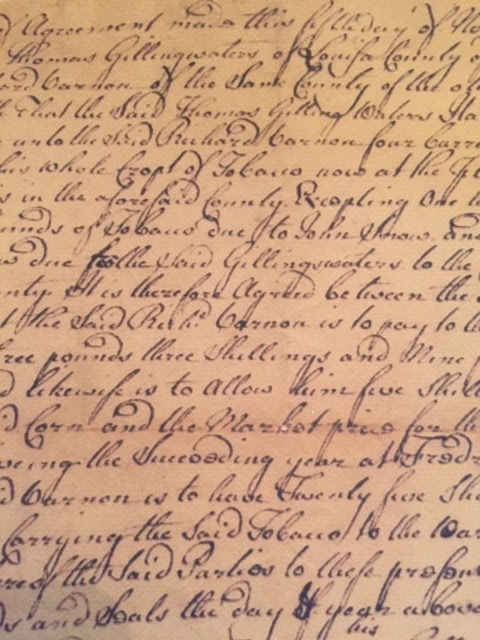 of Agreement made this fifth day of No
Thomas Gillingwaters of Louisa County o
ard Varnon of the Same County of the o
That the Said Thomas Gilling Waters Sta
unto the Said Richard Varnon four barre
his whole Cropt of Tobacco now at the Pl
s in the aforesaid County Excepting One
unds of Tobacco due to John Snow and
due to the Said Gillingswaters to the
nty. It is therefore Agreed between the
t the Said Richd. Varnon is to pay to
hree pounds three Shillings and Nine p
d likewise is to Allow him five Shill
d Corn and the Market price for the
the Succeeding year at Fredr
d Varnon is to have Twenty five Shi
Carrying the Said Tobacco to the War
the Said Parties to these present
ds and Seals the day & year above
his